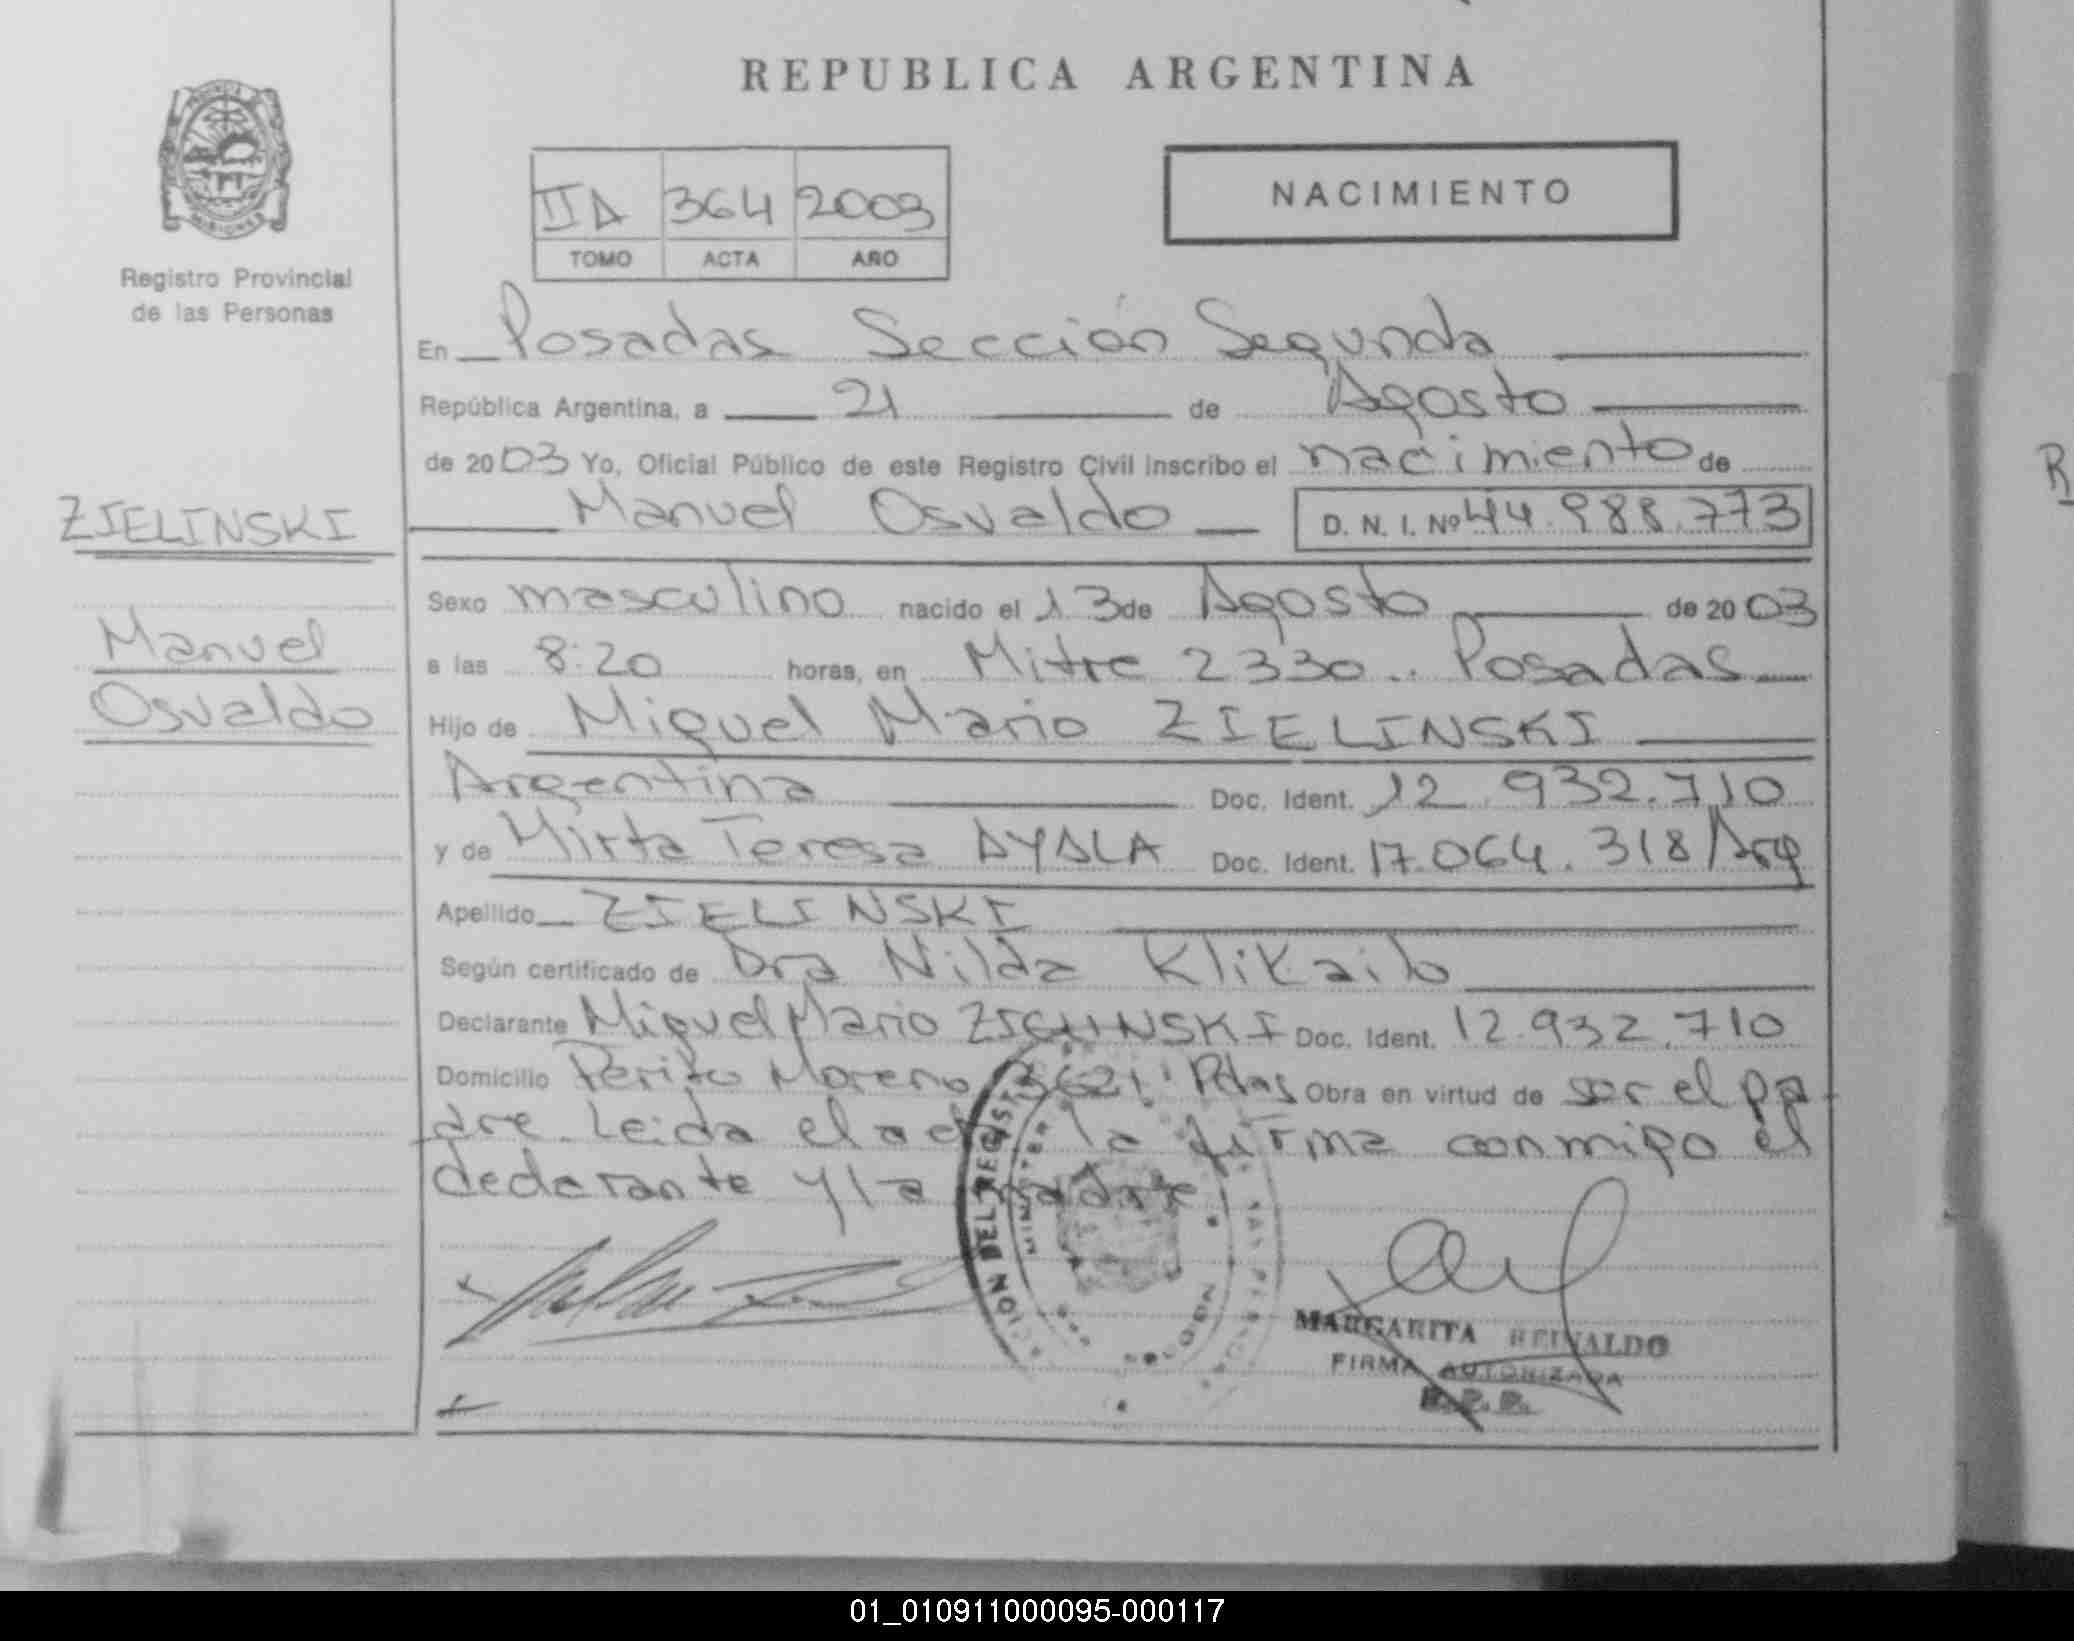 REPUBLICA ARGENTINA
PROVINCIA
MISIONES
Registro Provincial
de las Personas
IIA 364 2003
TOMO ACTA AÑO
NACIMIENTO
En Posadas Sección Segunda
República Argentina, a 21 de Agosto
de 2003 Yo, Oficial Público de este Registro Civil inscribo el nacimiento de
Manuel Osvaldo D. N. I. Nº 44.988.773
ZIELINSKI
Manuel
Osvaldo
Sexo masculino nacido el 13 de Agosto de 2003
a las 8:20 horas, en Mitre 2330.. Posadas
Hijo de Miguel Mario ZIELINSKI
Argentina Doc. Ident. 12.932.710
y de Mirta Teresa AYALA Doc. Ident. 17.064.318/Arg
Apellido ZIELINSKI
Según certificado de Dra Nilda
Declarante Miguel Mario ZIELINSKI Doc. Ident. 12.932.710
Domicilio Perito Moreno 3621 Pdas Obra en virtud de ser el pa
dre. Leida el acta la firma conmigo el
declarante y la madre
MARGARITA REINALDO
FIRMA AUTORIZADA
R.P.P.
R
01_010911000095-000117